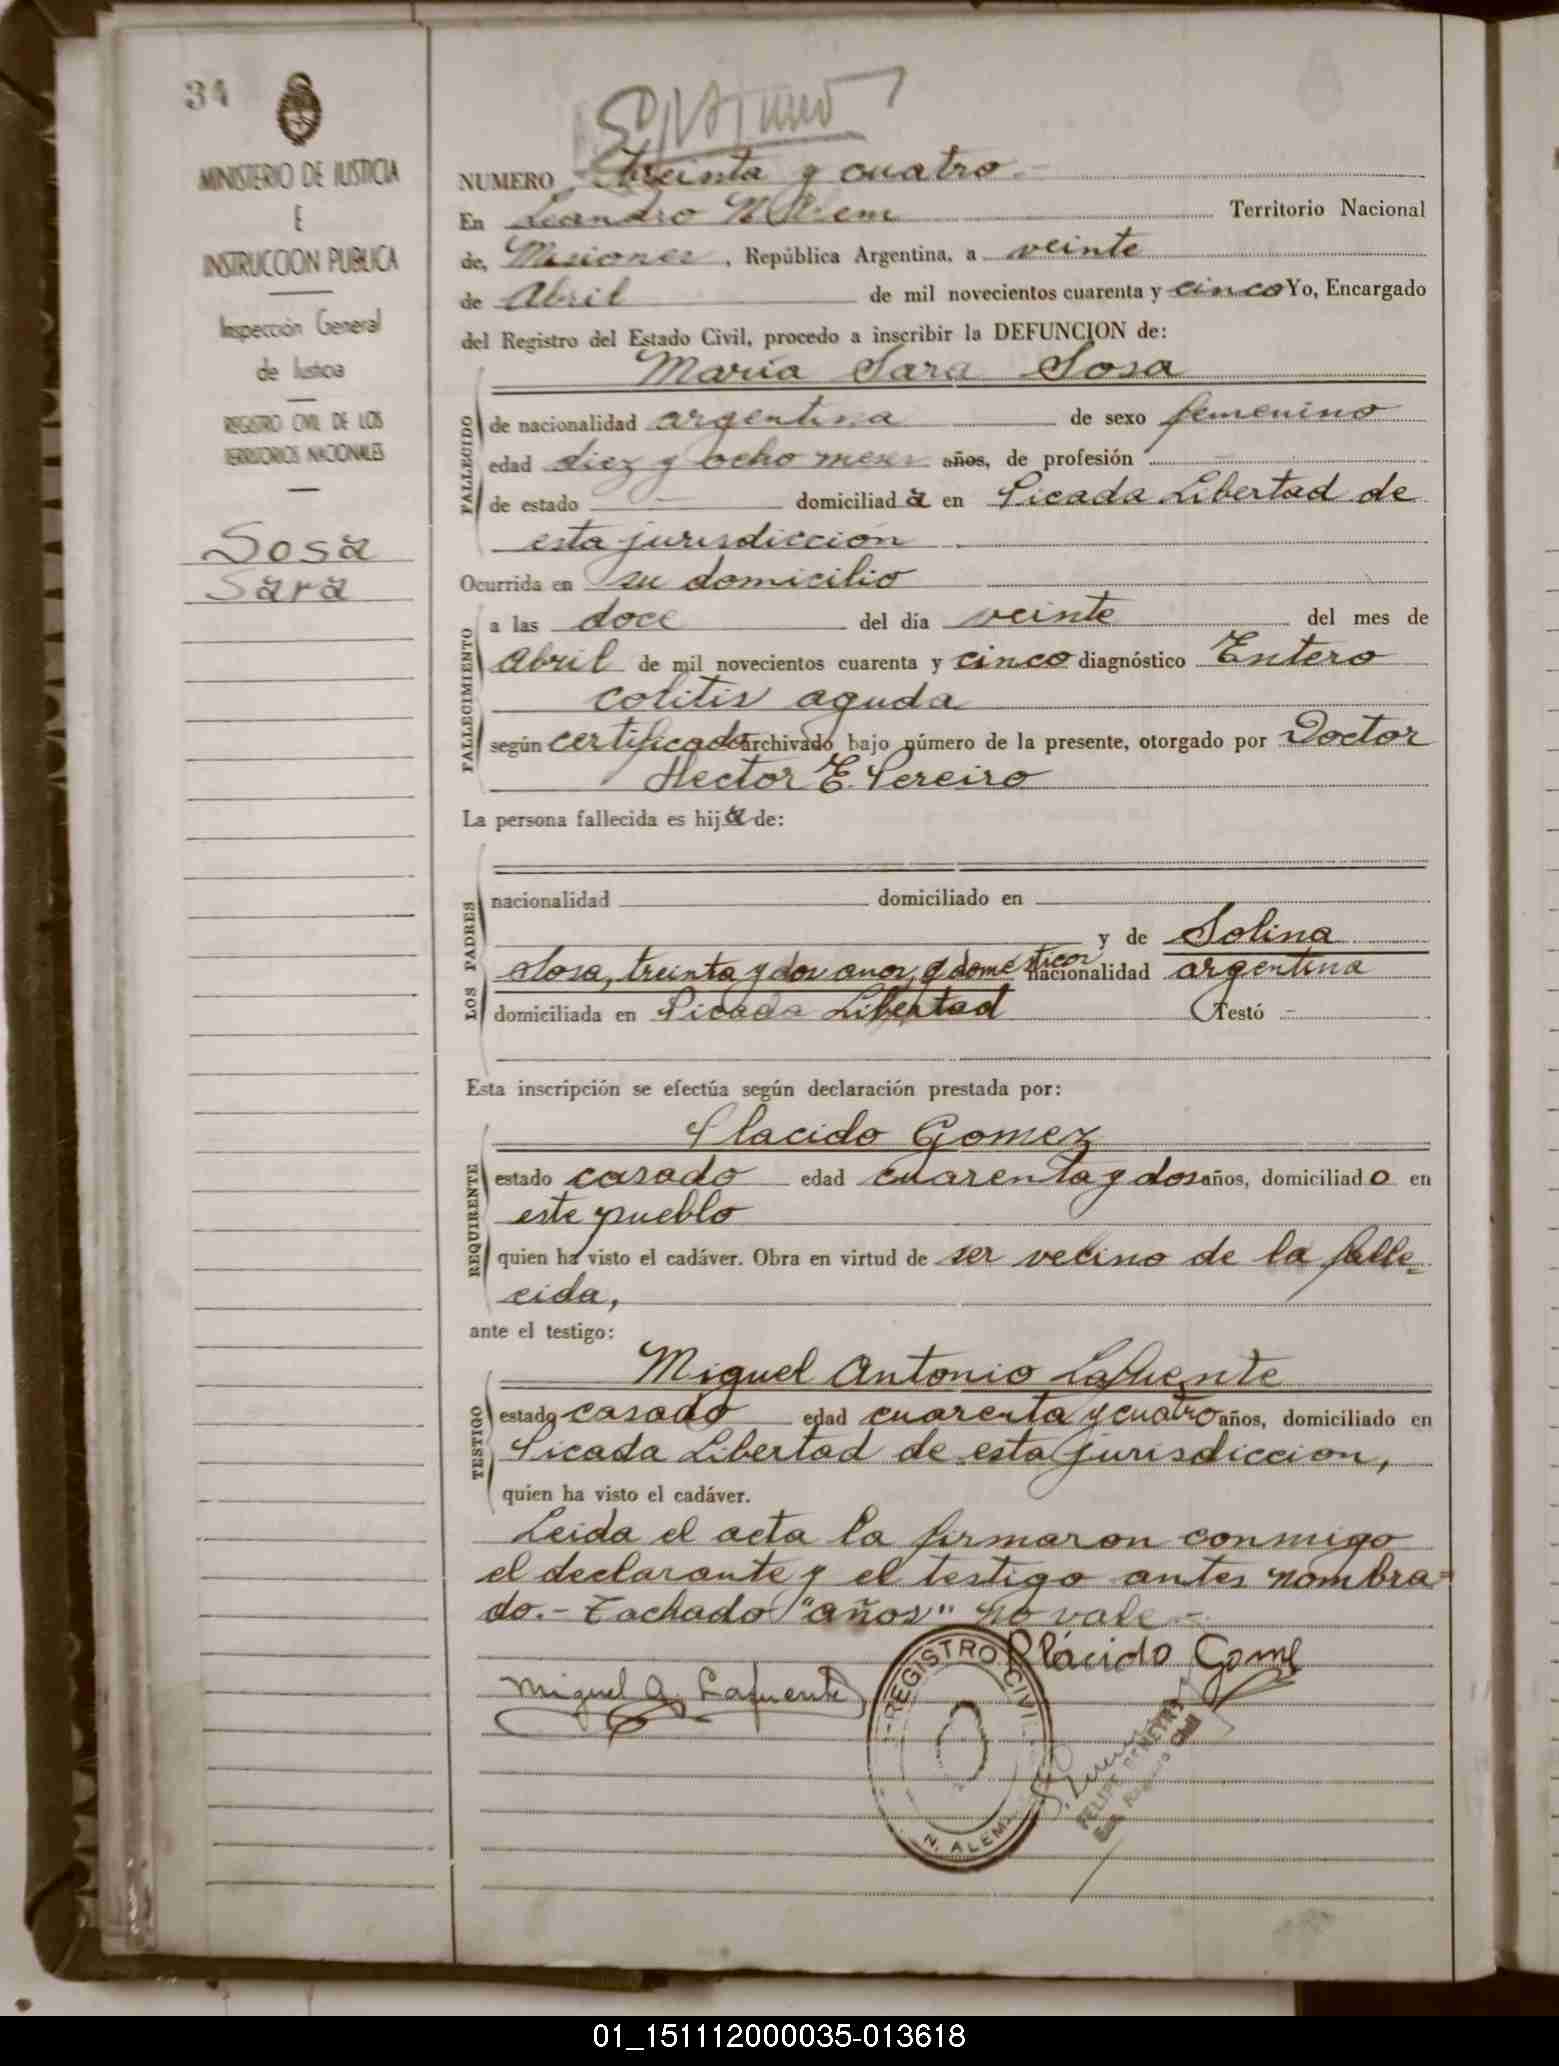 34
MINISTERIO DE JUSTICIA
E
INSTRUCCION PUBLICA
Inspección General
de Justicia
REGISTRO CIVIL DE LOS
TERRITORIOS NACIONALES
Sosa
Sara
NUMERO treinta y cuatro.-
En Leandro N Alem Territorio Nacional
de, Misiones, República Argentina, a veinte
de Abril de mil novecientos cuarenta y cinco Yo, Encargado
del Registro del Estado Civil, procedo a inscribir la DEFUNCION de:
Maria Sara Sosa
FALLECIDO
de nacionalidad argentina de sexo femenino
edad diez y ocho meses años, de profesión
de estado domiciliada en Picada Libertad de
esta jurisdicción
Ocurrida en su domicilio
FALLECIMIENTO
a las doce del dia veinte del mes de
Abril de mil novecientos cuarenta y cinco diagnóstico Entero
colitis aguda
según certificado archivado bajo número de la presente, otorgado por Doctor
Hector E. Pereiro
La persona fallecida es hija de:
LOS PADRES
nacionalidad domiciliado en
y de Solina
Sosa, treinta y dos anos, q domesticos nacionalidad argentina
domiciliada en Picada Libertad Testó -
Esta inscripción se efectúa según declaración prestada por:
Placido Gomez
REQUIRENTE
estado casado edad cuarenta y dos años, domiciliado en
este pueblo
quien ha visto el cadáver. Obra en virtud de ser vecino de la falle-
cida,
ante el testigo:
Miguel Antonio Lafuente
TESTIGO
estado casado edad cuarenta y cuatro años, domiciliado en
Picada Libertad de esta jurisdiccion,
quien ha visto el cadáver.
Leida el acta la firmaron conmigo
el declarante y el testigo antes nombra-
do.- Tachado "años" no vale.-
Plácido Gomez
Miguel A. Lafuente
REGISTRO CIVIL
N. ALEM
FELIPE DEMEYRS
Enc. Registro Civil
01_151112000035-013618